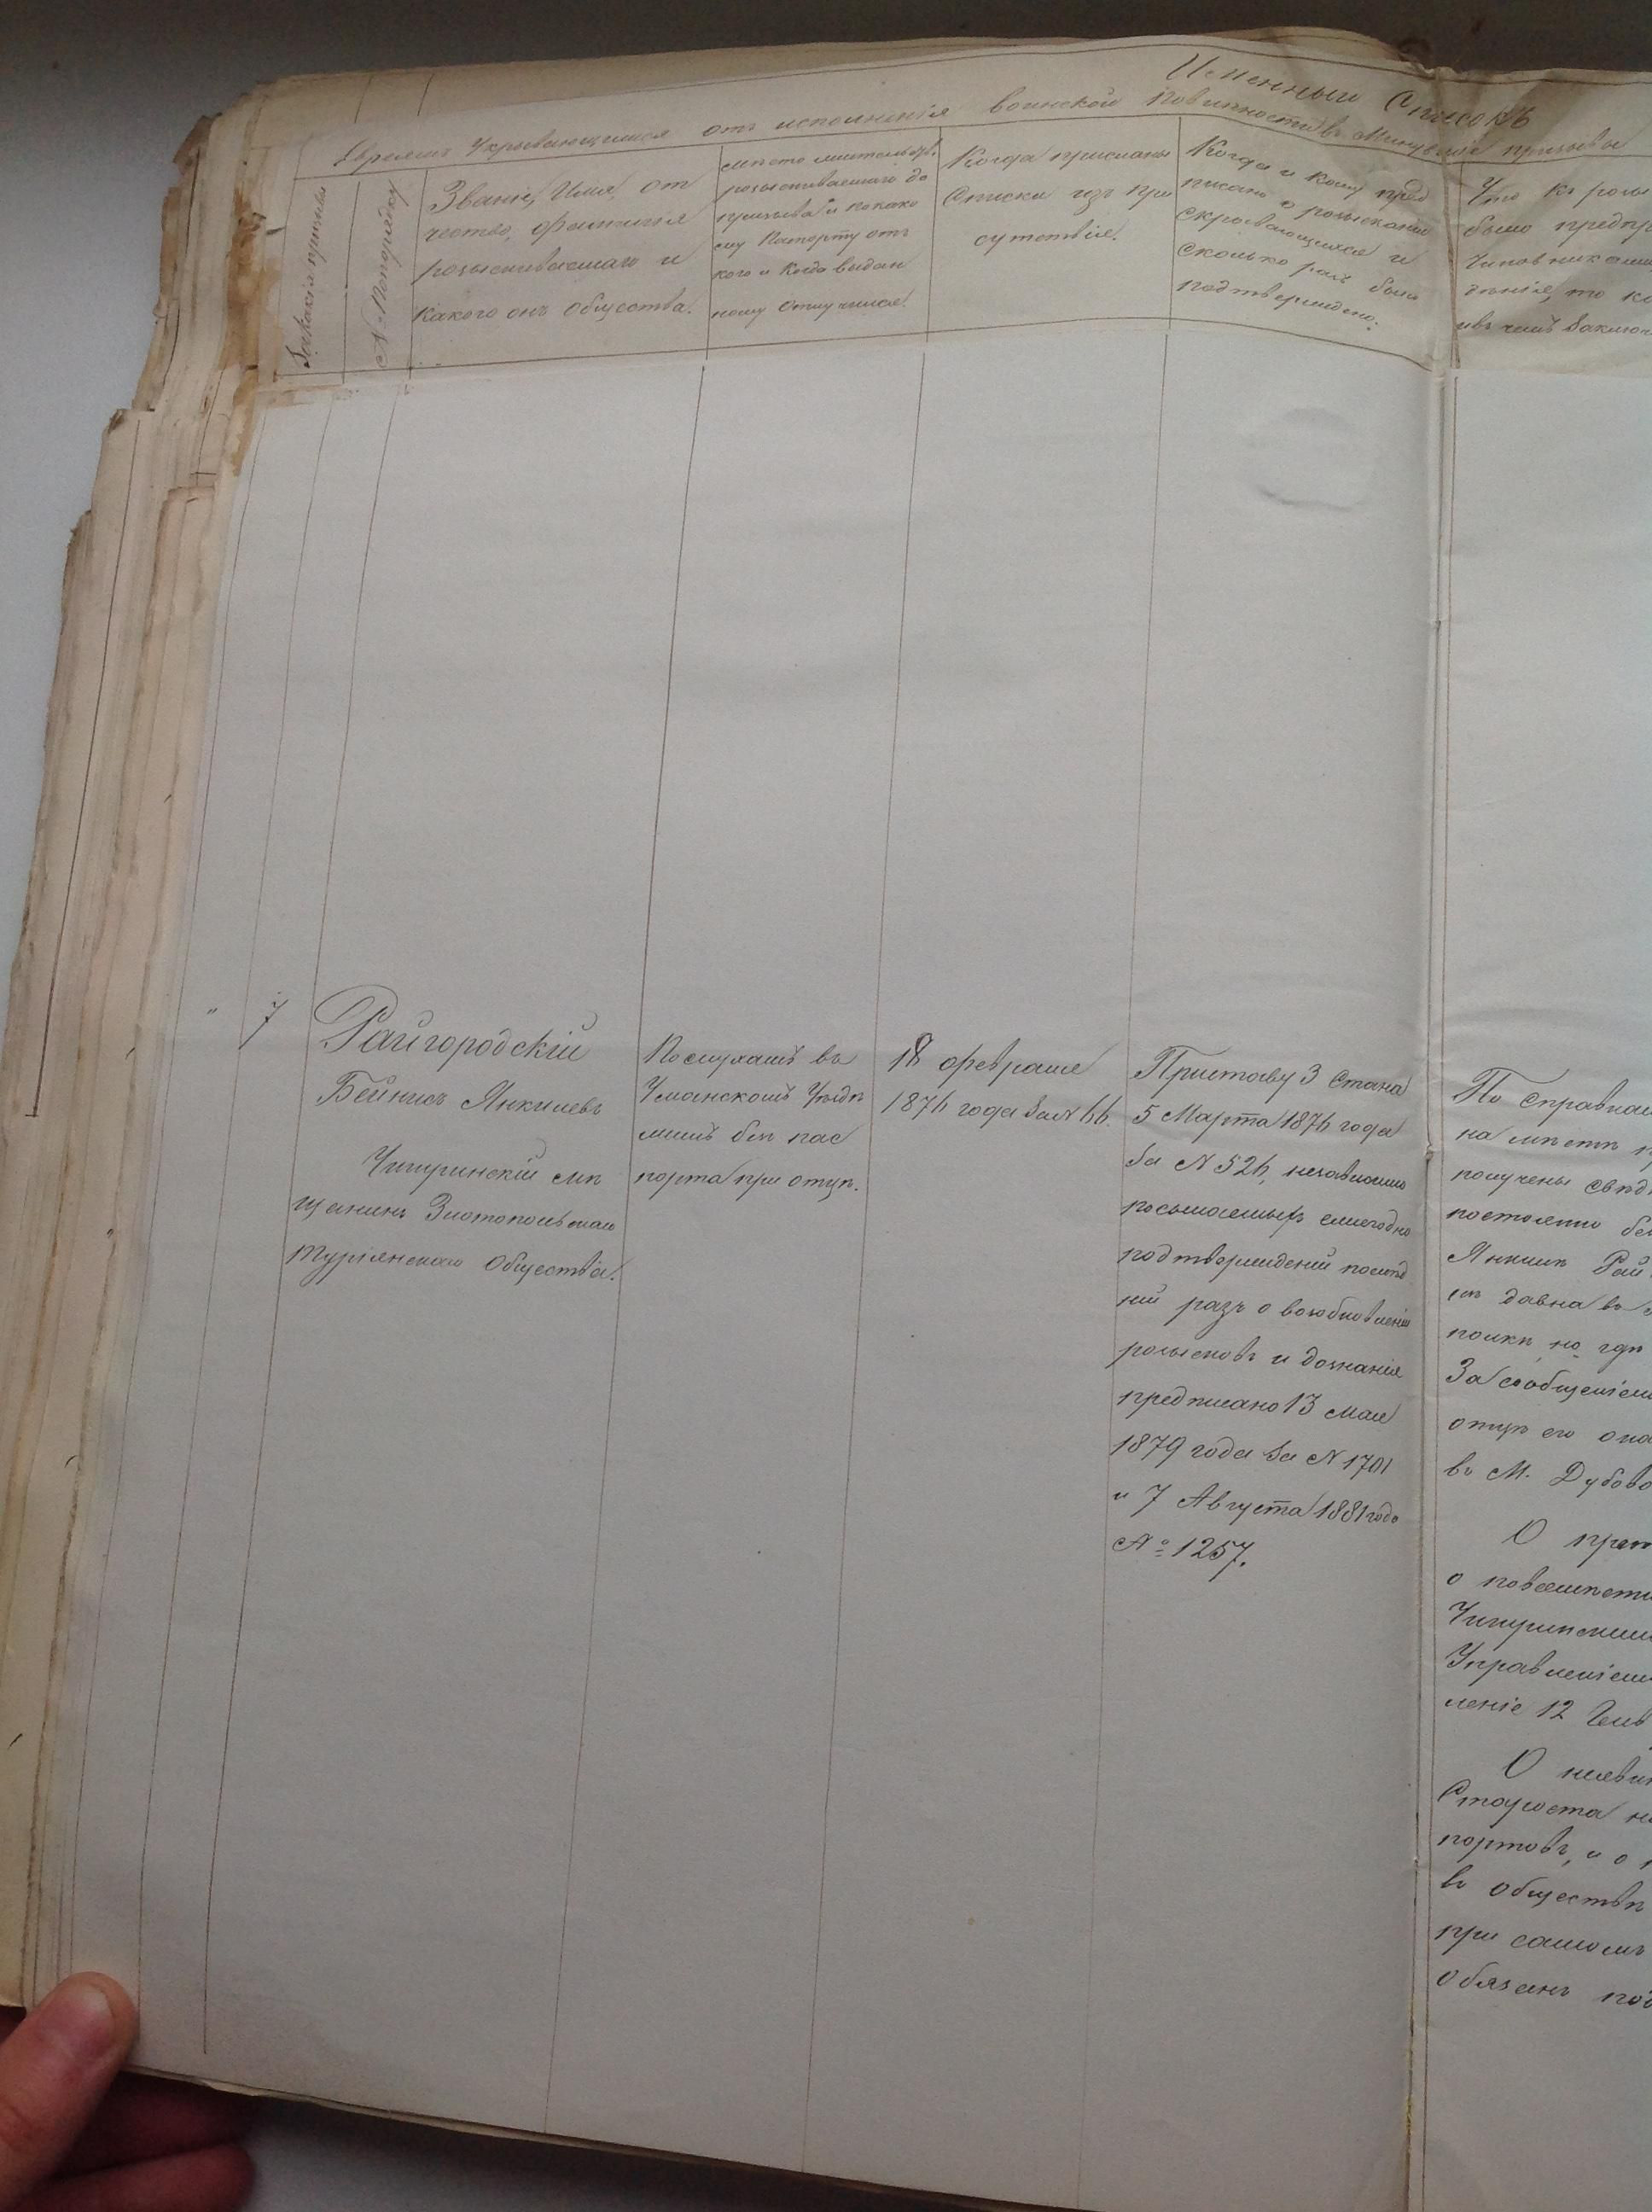 Именный Списокъ
Евреямъ Укрывающимся отъ исполненія воинской повинности въ Минувшіе призывы
№ По порядку
Званіе, Имя, от
чество, фамилія
розыскиваемаго и
какого онъ общества.
мѣсто жительства
розыскиваемаго до
призыва и по како
му Паспорту отъ
кого и когда выдан
ному отлучился.
Когда присланы
Списки изъ При
сутствія.
Когда и кому пред
писано о розысканіи
скрывающихся и
сколько разъ было
подтверждено.
Что къ розы
было предпр
Чиновниками
то
въ чемъ заключ
" 7
Райгородскій
Бейнисъ Янкилевъ
Чигиринскій мѣ
щанинъ Златопольскаго
Туріянскаго Общества.
По слухамъ въ
Уманскомъ Уѣздѣ
безъ пас
порта при отцѣ.
18 февраля
1876 года за № 66.
Приставу 3 Стана
5 Марта 1876 года
за № 526, независимо
посылаемыхъ ежегодно
подтвержденій послѣд
ній разъ о возобновленіи
розысковъ и дознанія
предписано 13 мая
1879 года за № 1701
и 7 Августа 1881 года
№ 1257.
По справка
на мѣстѣ
получены свѣд
постоянно
Янкиль Рай
давна въ
полѣ но гдѣ
За сообщеніем
отцѣ его
въ М. Дубово
О
о
Чигиринским
Управленіем
леніе 12
О неяви
Староста
портовъ, и о
въ обществѣ
при самомъ
обязанъ